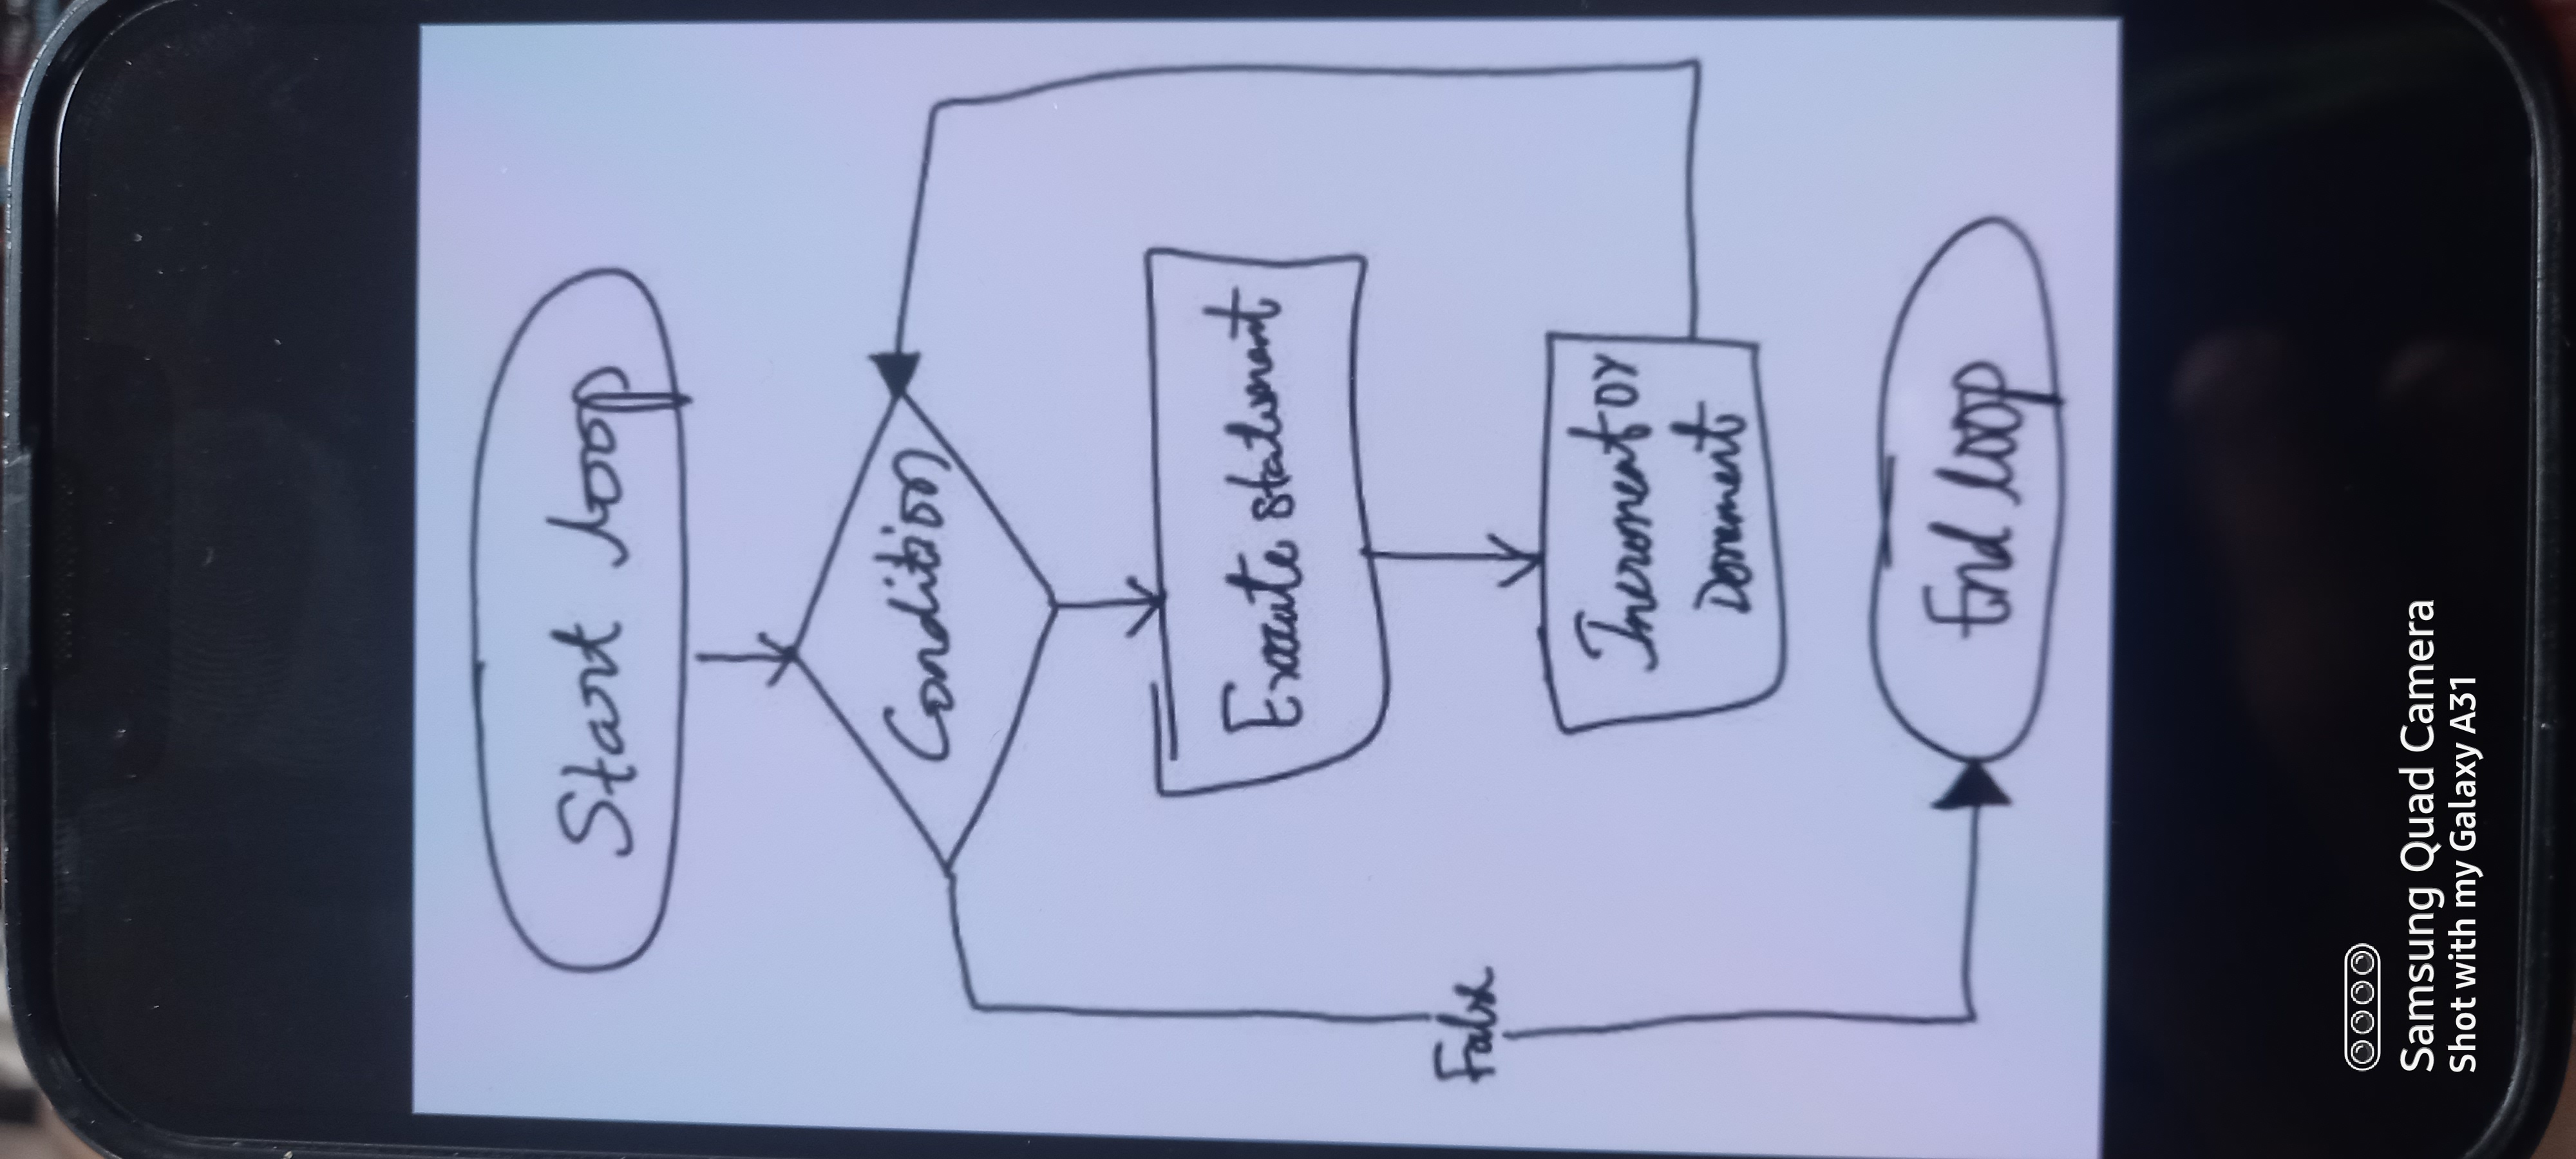 Start loop
Condition
Execute statement
False
Increment or
Decrement
End loop
Samsung Quad Camera
Shot with my Galaxy A31